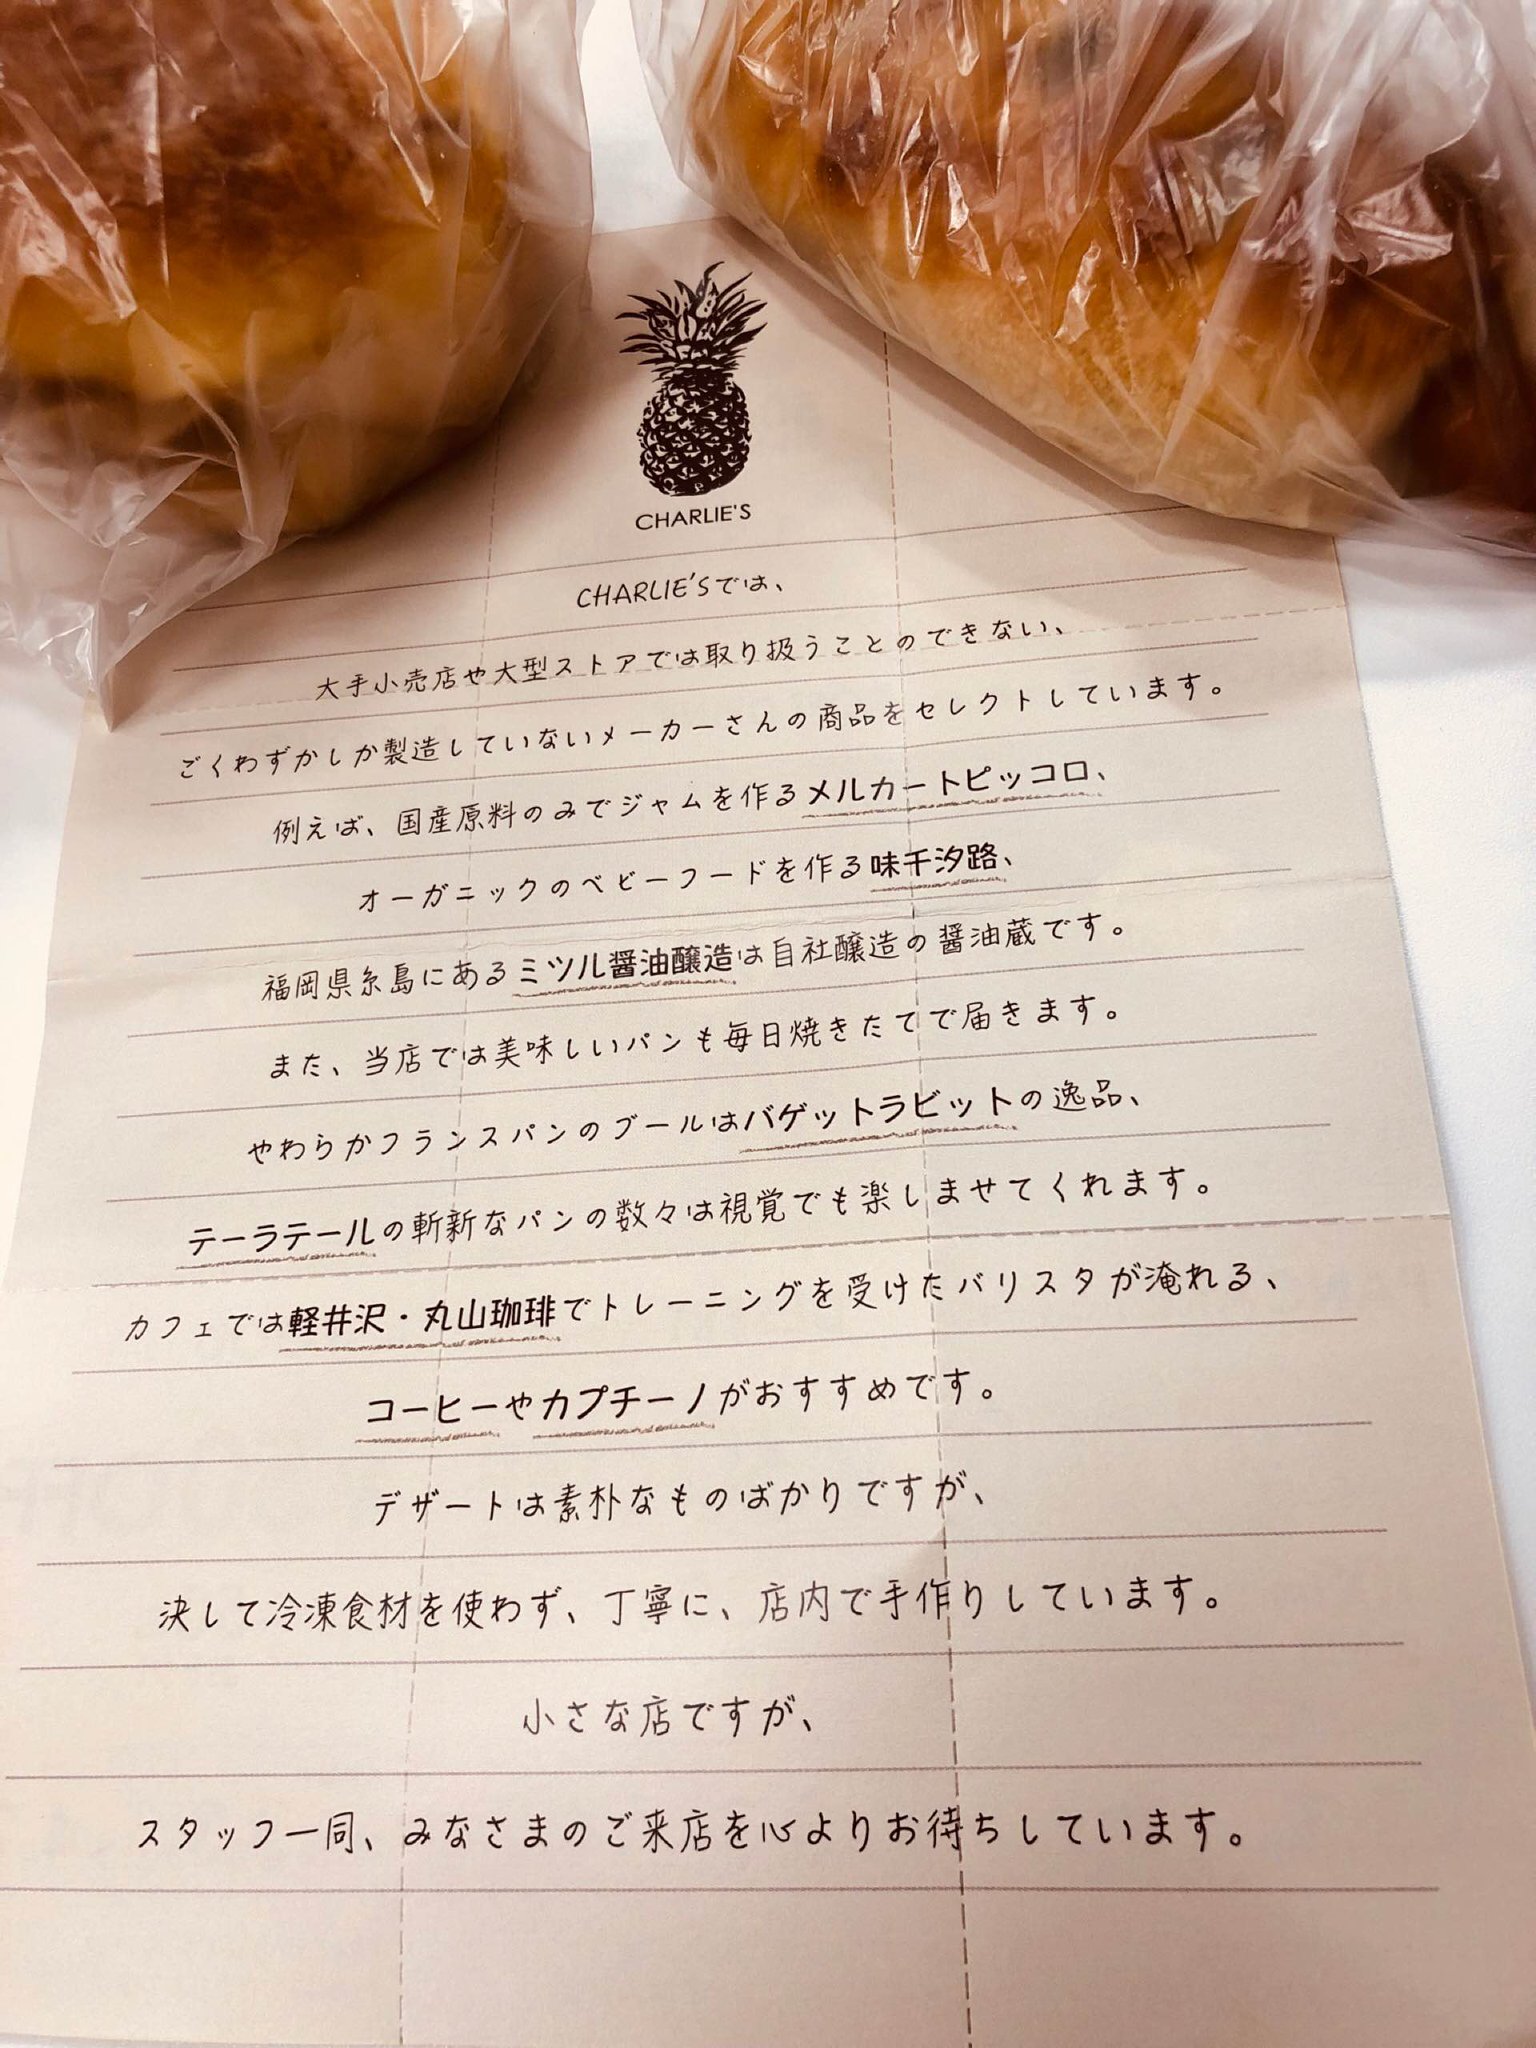 CHARLIE'S
CHARLIE'Sでは、
大手小売店や大型ストアでは取り扱うことのできない、
ごくわずかしか製造していないメーカーさんの商品をセレクトしています。
例えば、国産原料のみでジャムを作るメルカートピッコロ、
オーガニックのベビーフードを作る味千汐路、
福岡県糸島にあるミツル醤油醸造は自社醸造の醤油蔵です。
また、当店では美味しいパンも毎日焼きたてで届きます。
やわらかフランスパンのブールはバゲットラビットの逸品、
テーラテールの斬新なパンの数々は視覚でも楽しませてくれます。
カフェでは軽井沢・丸山珈琲でトレーニングを受けたバリスタが淹れる、
コーヒーやカプチーノがおすすめです。
デザートは素朴なものばかりですが、
決して冷凍食材を使わず、丁寧に、店内で手作りしています。
小さな店ですが、
スタッフ一同、みなさまのご来店を心よりお待ちしています。